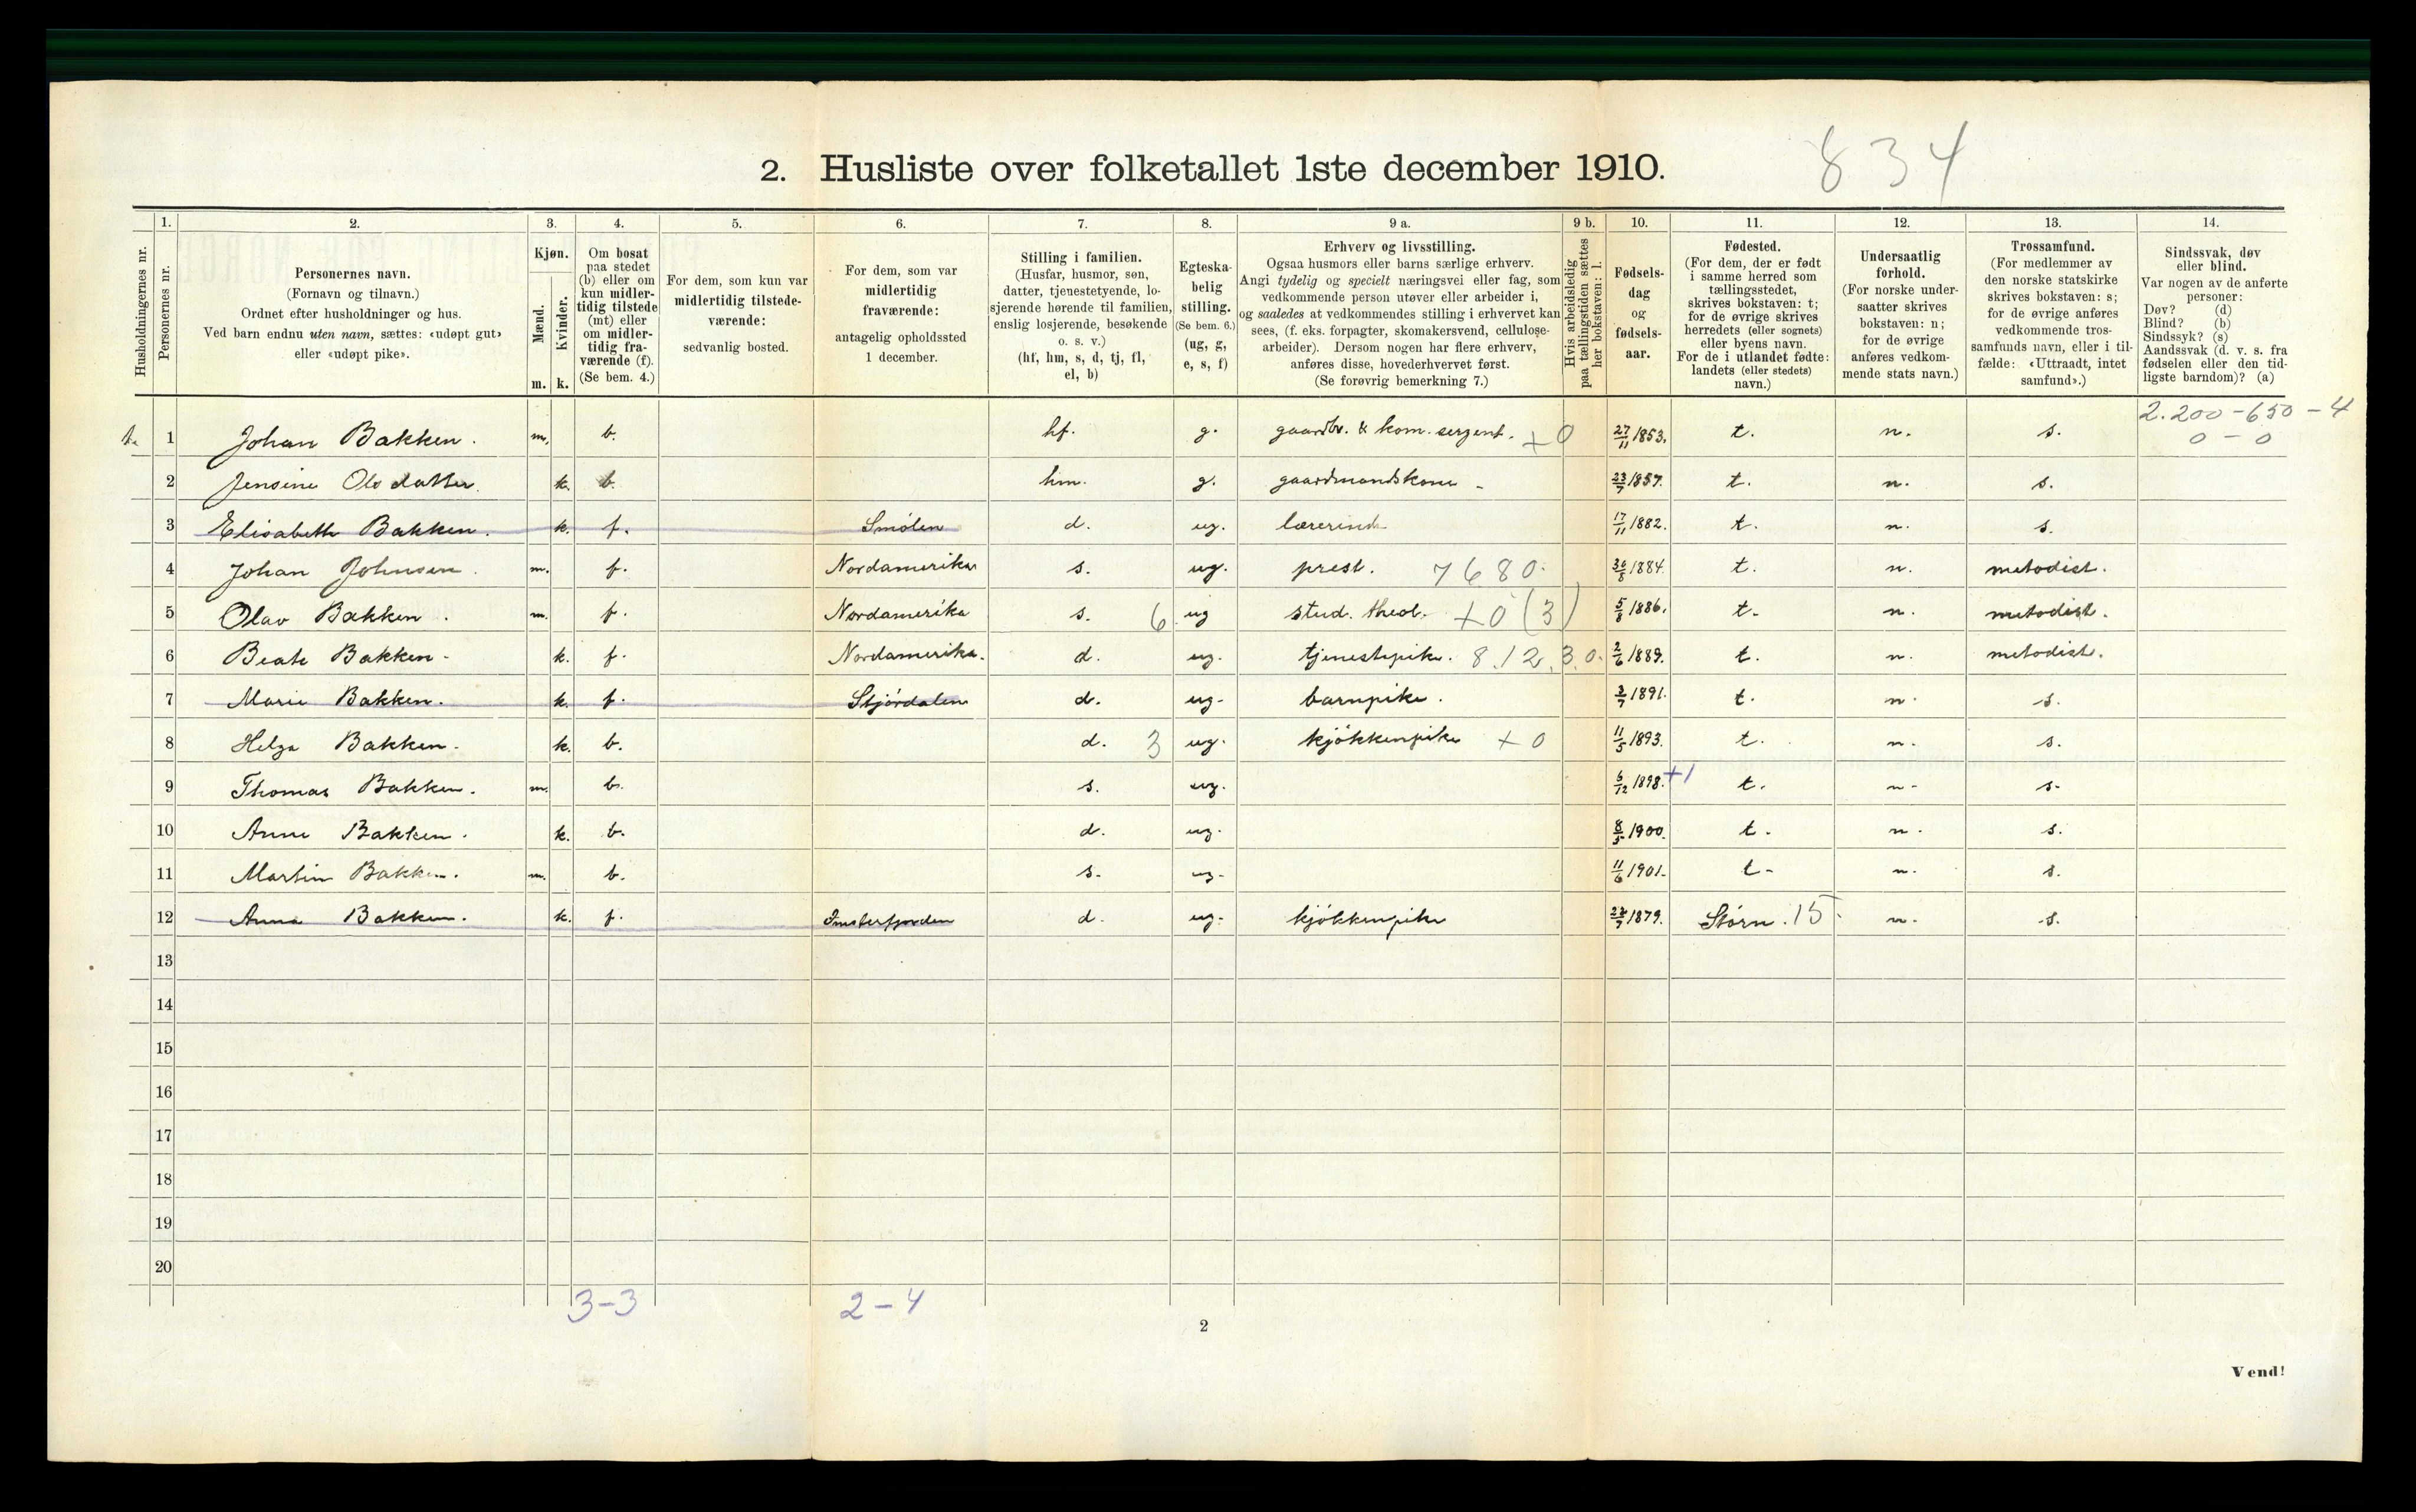 834
2. Husliste over folketallet 1ste december 1910.
Husholdningernes nr.
1. Personernes nr.
2. Personernes navn.
(Fornavn og tilnavn.)
Ordnet efter husholdninger og hus.
Ved barn endnu uten navn, sættes: «udøpt gut»
eller «udøpt pike».
3. Kjøn.
Mænd. Kvinder.
m. k.
4. Om bosat
paa stedet
(b) eller om
kun midler-
tidig tilstede
(mt) eller
om midler-
tidig fra-
værende (f).
(Se bem. 4.)
5. For dem, som kun var
midlertidig tilstede-
værende:
sedvanlig bosted.
6. For dem, som var
midlertidig
fraværende:
antagelig opholdssted
1 december.
7. Stilling i familien.
(Husfar, husmor, søn,
datter, tjenestetyende, lo-
sjerende hørende til familien,
enslig losjerende, besøkende
o. s. v.)
(hf, hm, s, d, tj, fl,
el, b)
8. Egteska-
belig
stilling.
(Se bem. 6.)
(ug, g,
e, s, f)
9 a. Erhverv og livsstilling.
Ogsaa husmors eller barns særlige erhverv.
Angi tydelig og specielt næringsvei eller fag, som
vedkommende person utøver eller arbeider i,
og saaledes at vedkommendes stilling i erhvervet kan
sees, (f. eks. forpagter, skomakersvend, cellulose-
arbeider). Dersom nogen har flere erhverv,
anføres disse, hovederhvervet først.
(Se forøvrig bemerkning 7.)
9 b. Hvis arbeidsledig
paa tællingstiden sættes
her bokstaven: l.
10. Fødsels-
dag
og
fødsels-
aar.
11. Fødested.
(For dem, der er født
i samme herred som
tællingsstedet,
skrives bokstaven: t;
for de øvrige skrives
herredets (eller sognets)
eller byens navn.
For de i utlandet fødte:
landets (eller stedets)
navn.)
12. Undersaatlig
forhold.
(For norske under-
saatter skrives
bokstaven: n;
for de øvrige
anføres vedkom-
mende stats navn.)
13. Trossamfund.
(For medlemmer av
den norske statskirke
skrives bokstaven: s;
for de øvrige anføres
vedkommende tros-
samfunds navn, eller i til-
fælde: «Uttraadt, intet
samfund».)
14. Sindssvak, døv
eller blind.
Var nogen av de anførte
personer:
Døv? (d)
Blind? (b)
Sindssyk? (s)
Aandssvak (d. v. s. fra
fødselen eller den tid-
ligste barndom)? (a)
2.200-650-4
0-0
1 Johan Bakken. m. b. hf. g. gaardbr. & kom. sergent. +0 27/11 1853. t. n. s.
2 Jensine Olsdatter. k. b. hm. g. gaardmandskone - 23/7 1857. t. n. s.
3 Elisabeth Bakken. k. f. Smölen d. ug. lærerinde 17/11 1882. t. n. s.
4 Johan Johnsen. m. f. Nordamerika s. ug. prest. 7680. 30/8 1884. t. n. metodist.
5 Olav Bakken. m. f. Nordamerika s. 6. ug stud. theol. +0 (3) 5/8 1886. t. n. metodist.
6 Beate Bakken. k. f. Nordamerika. d. ug. tjenestepike. 8.12.3.0. 2/6 1889. t. n. metodist.
7 Marie Bakken. k. f. Stjördalen d. ug. barnpike. 3/7 1891. t. n. s.
8 Helga Bakken. k. b. d. 3 ug. kjökkenpike +0 11/5 1893. t. n. s.
9 Thomas Bakken. m. b. s. ug. 6/12 1898. +1 t. n. s.
10 Anne Bakken. k. b. d. ug. 8/5 1900. t. n. s.
11 Martin Bakken. m. b. s. ug. 11/6 1901. t. n. s.
12 Anna Bakken. k. f. d. ug. kjökkenpike 1879. Störn. 15. n. s.
13
14
15
16
17
18
19
20
3-3 2-4
2
Vend!